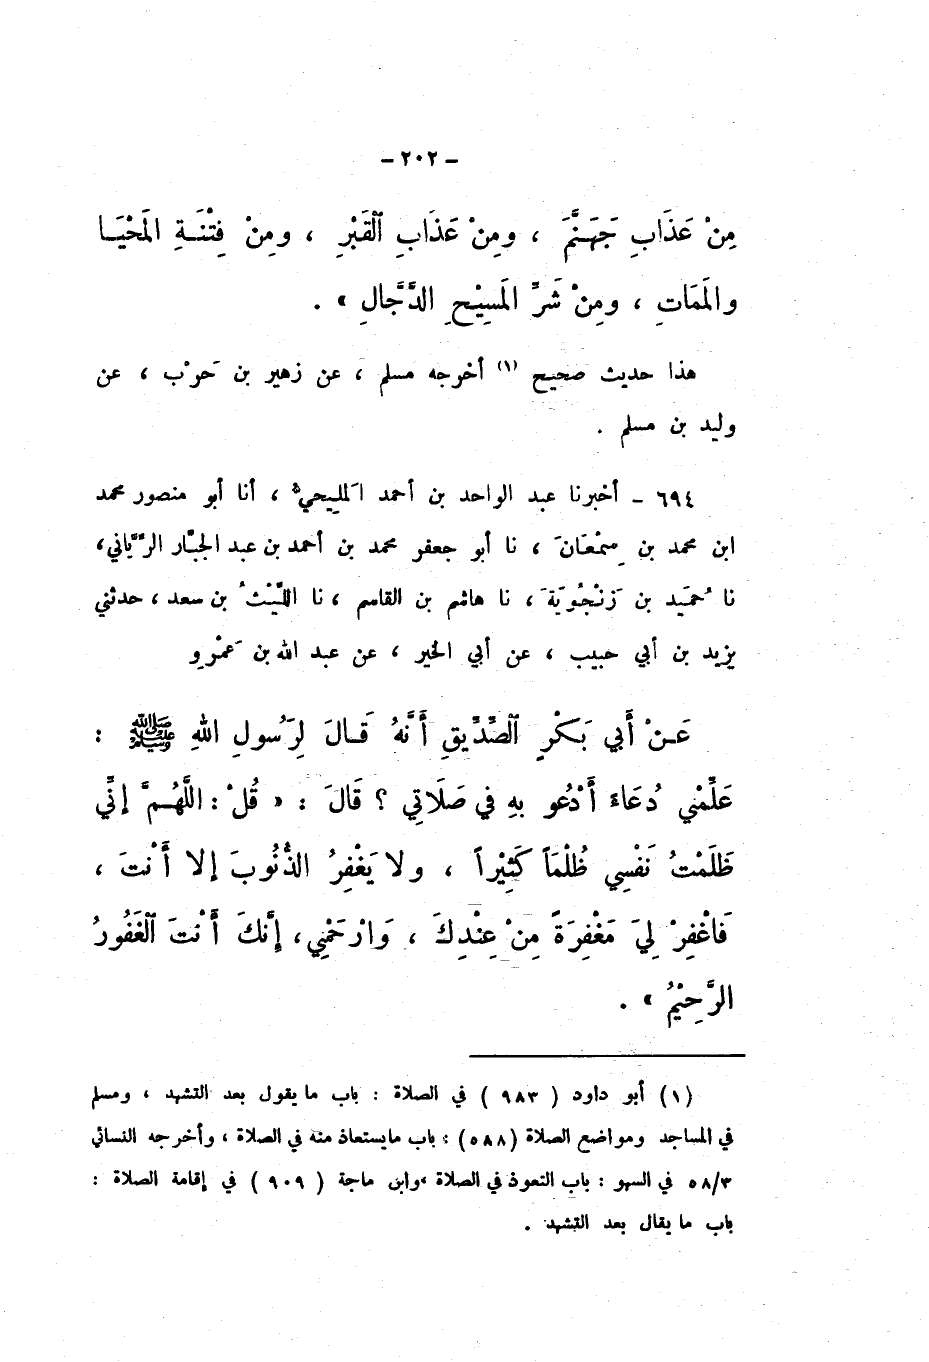 – ٢٠٢ –
مِنْ عَذَابِ جَهَنَّمَ ، ومِنْ عَذَابِ ٱلْقَبْرِ ، ومِنْ فِتْنَةِ المَحْيَا
والمَمَاتِ ، ومِنْ شَرِّ المَسِيْحِ الدَّجَّالِ » .
هذا حديث صحيح (١) أخرجه مسلم ، عن زهير بن حَرْب ، عن
وليد بن مسلم .
٦٩٤ – أخبرنا عبد الواحد بن أحمد المَلِيحيُّ ، أنا أبو منصور محمد
ابن محمد بن سِمْعَانَ ، نا أبو جعفر محمد بن أحمد بن عبد الجبَّار الرَّيَّاني ،
نا حُمَيد بن زَنْجُوَيَةَ ، نا هاشم بن القاسم ، نا اللَّيْثُ بن سعد ، حدثني
يزيد بن أبي حبيب ، عن أبي الخير ، عن عبد الله بن عَمْرٍو
عَنْ أَبي بَكْرٍ ٱلصِّدِّيقِ أَنَّهُ قَالَ لِرَسُولِ اللهِ ﷺ :
عَلِّمْنِي دُعَاءً أَدْعُو بِهِ فِي صَلَاتِي ؟ قَالَ : « قُلْ : اللَّهُمَّ إنِّي
ظَلَمْتُ نَفْسِي ظُلْمَاً كَثِيْراً ، ولا يَغْفِرُ الذُّنُوبَ إلا أَنْتَ ،
فَاغْفِرْ لِيَ مَغْفِرَةً مِنْ عِنْدِكَ ، وَارْحَمْنِي ، إنَّكَ أَنْتَ ٱلْغَفُورُ
الرَّحِيْمُ » .
(١) أبو داود ( ٩٨٣ ) في الصلاة : باب ما يقول بعد التشهد ، ومسلم
في المساجد ومواضع الصلاة (٥٨٨) : باب ما يستعاذ منه في الصلاة ، وأخرجه النسائي
٥٨/٣ في السهو : باب التعوذ في الصلاة ، وابن ماجة ( ٩٠٩ ) في إقامة الصلاة :
باب ما يقال بعد التشهد .